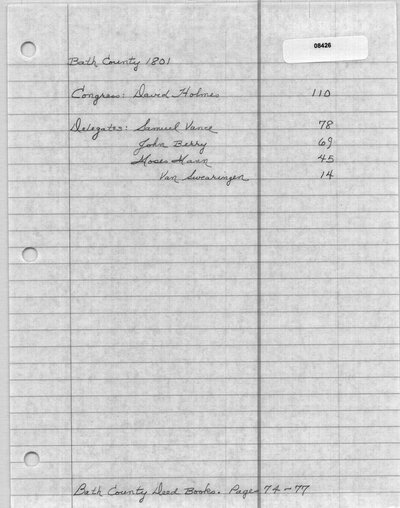 08426
Bath County 1801
Congress: David Holmes 110
Delegates: Samuel Vance 78
John Berry 69
Moses Mann 45
Van Swearingen 14
Bath County Deed Books. Page 74-77